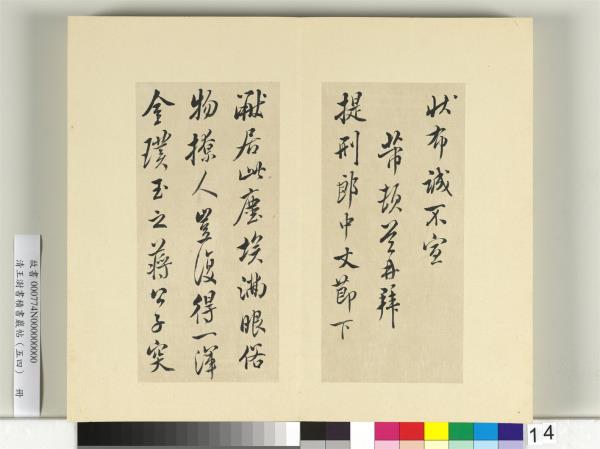 狀布誠不宣
芾頓首再拜
提刑郎中丈節下
厭居此塵埃滿眼俗
物撩人豈復得一渾
金璞玉之蔣公子突
故書000774N000000000
清王澍書積書巖帖(五四) 冊
14